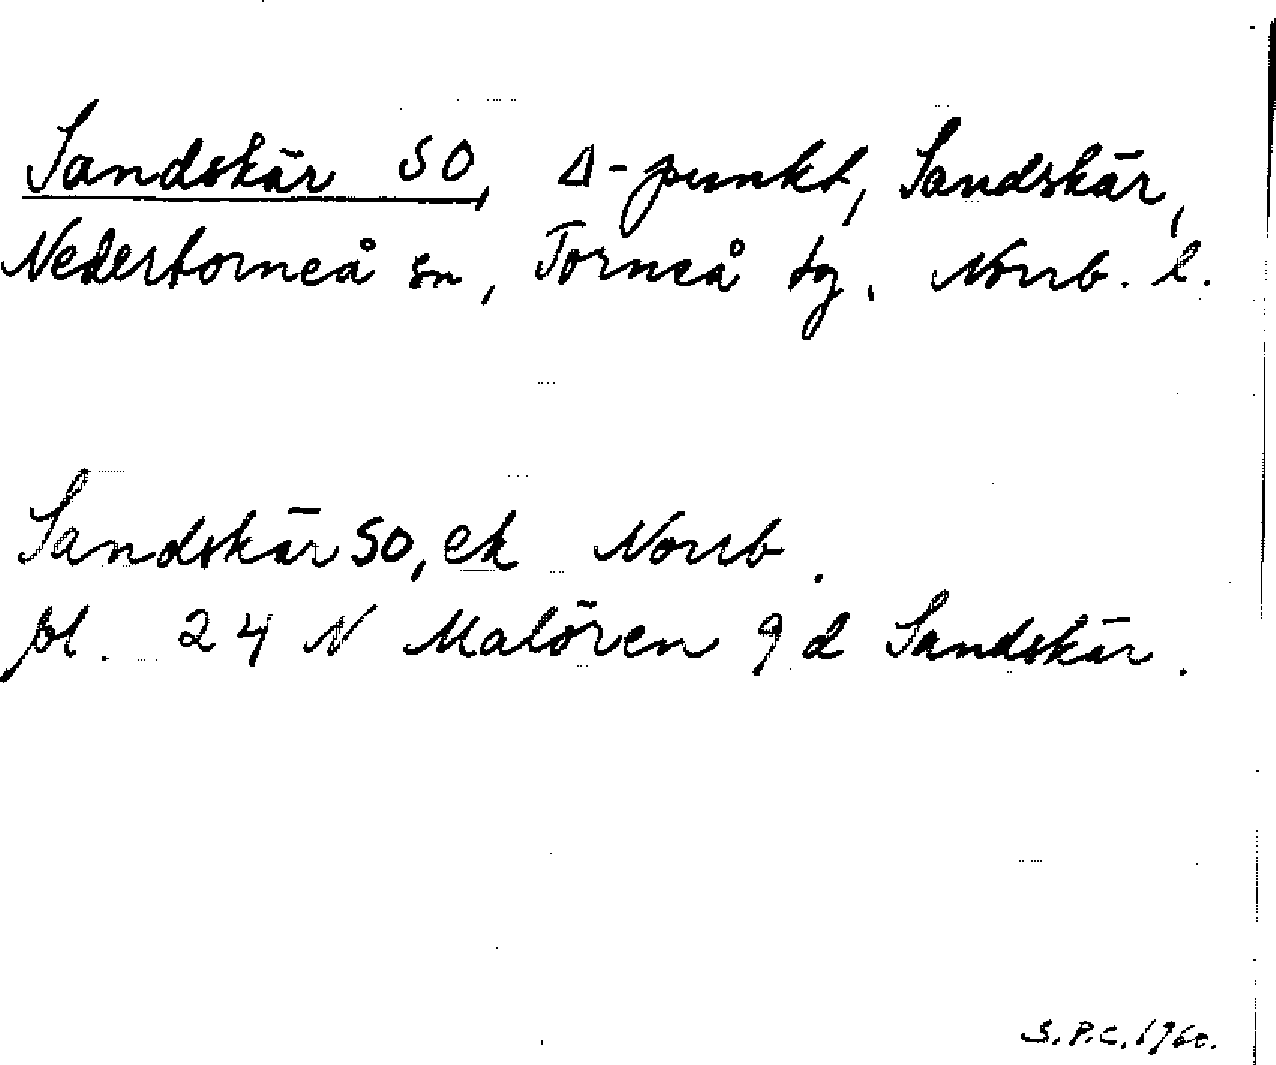 Sandskär SO, Δ-punkt, Sandskär,
Nedertorneå sn, Torneå tg. Norrb. l.
Sandskär SO, ek Norrb.
bl. 24 N Malören 9 d Sandskär.
S.P.C. 1960.